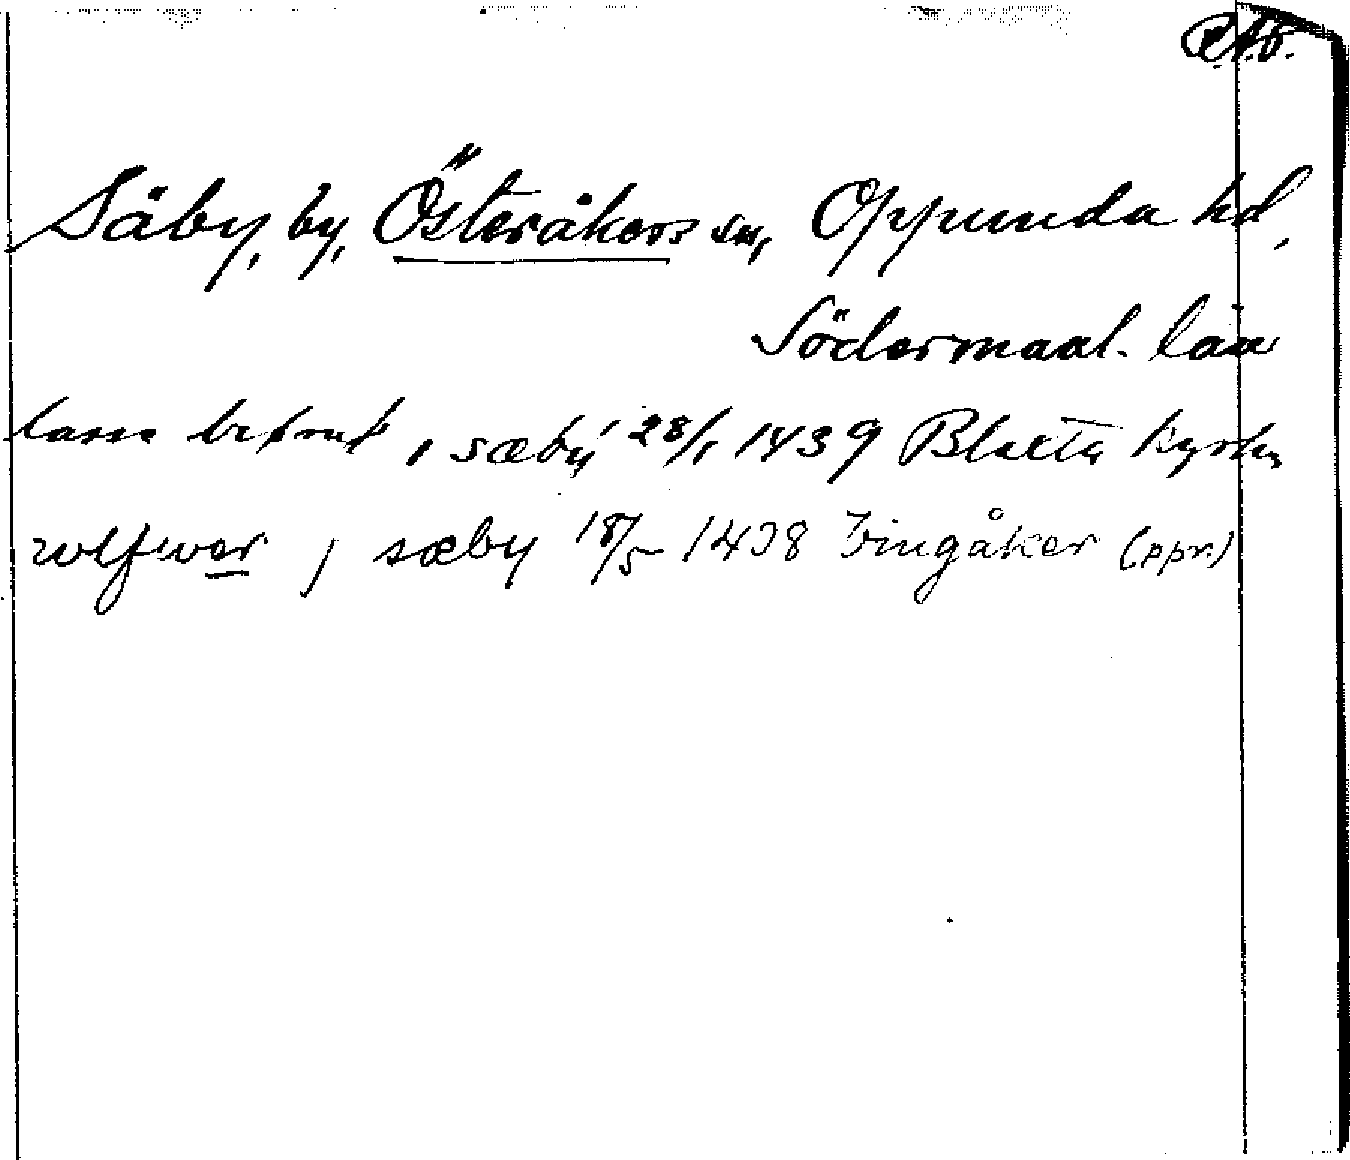 R.A.P.
Säby, by, Österåkers sn, Oppunda hd,
Södermanl. län
lasse , sæby 28/1 1439 Blacta kyrka
wlfwer j sæby 18/5 1438 Vingåker (ppr.)